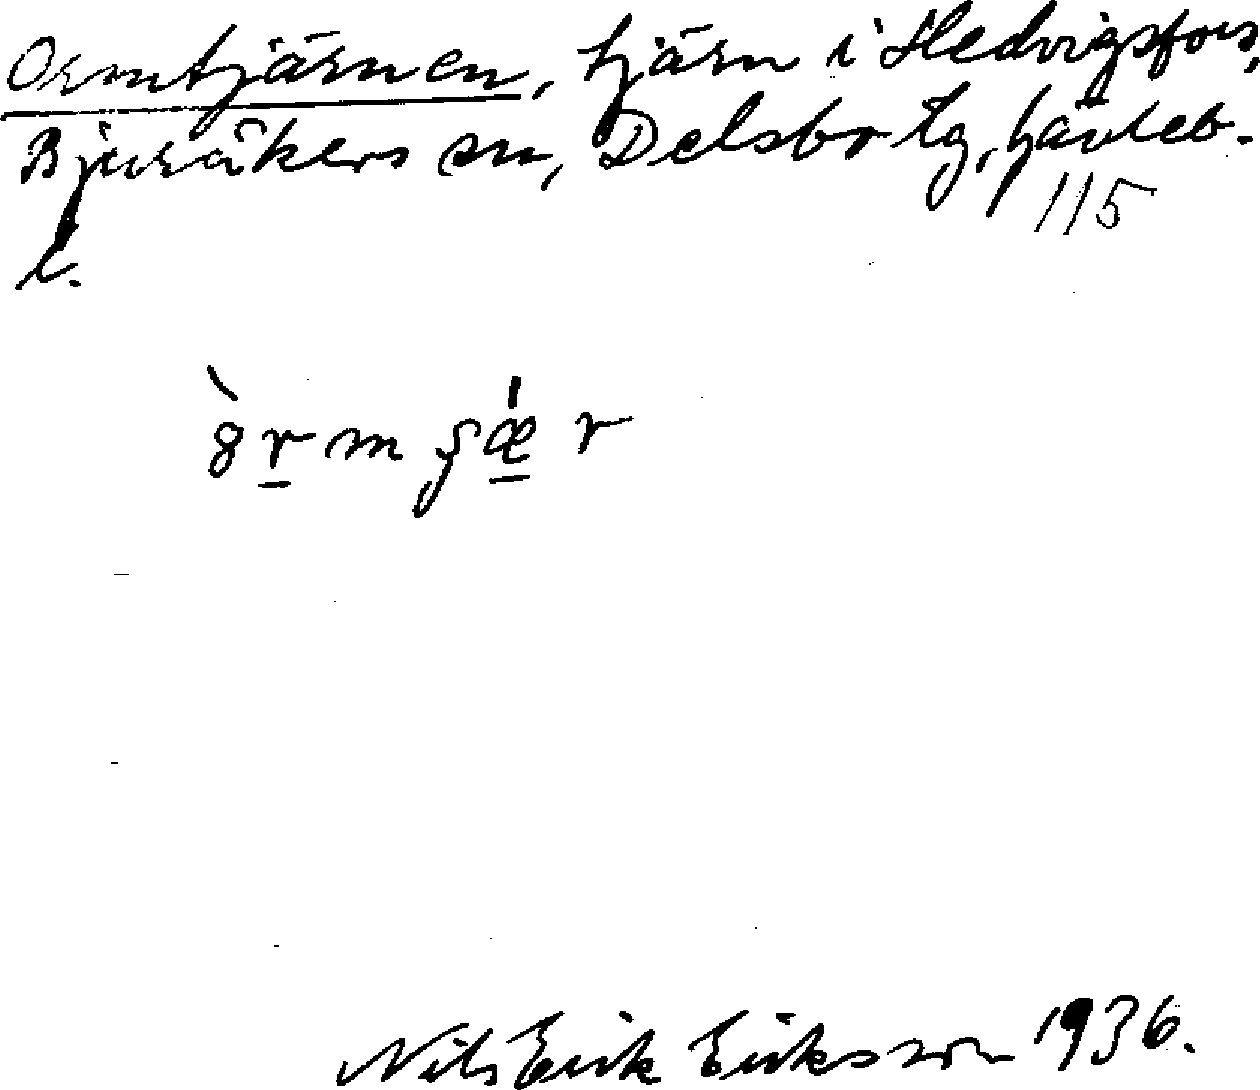 Ormtjärnen, tjärn i Hedvigsfors,
Bjuråkers sn, Delsbo tg, Gävleb.
l. 115
òrmçǽr
Nils Erik Eriksson 1936.